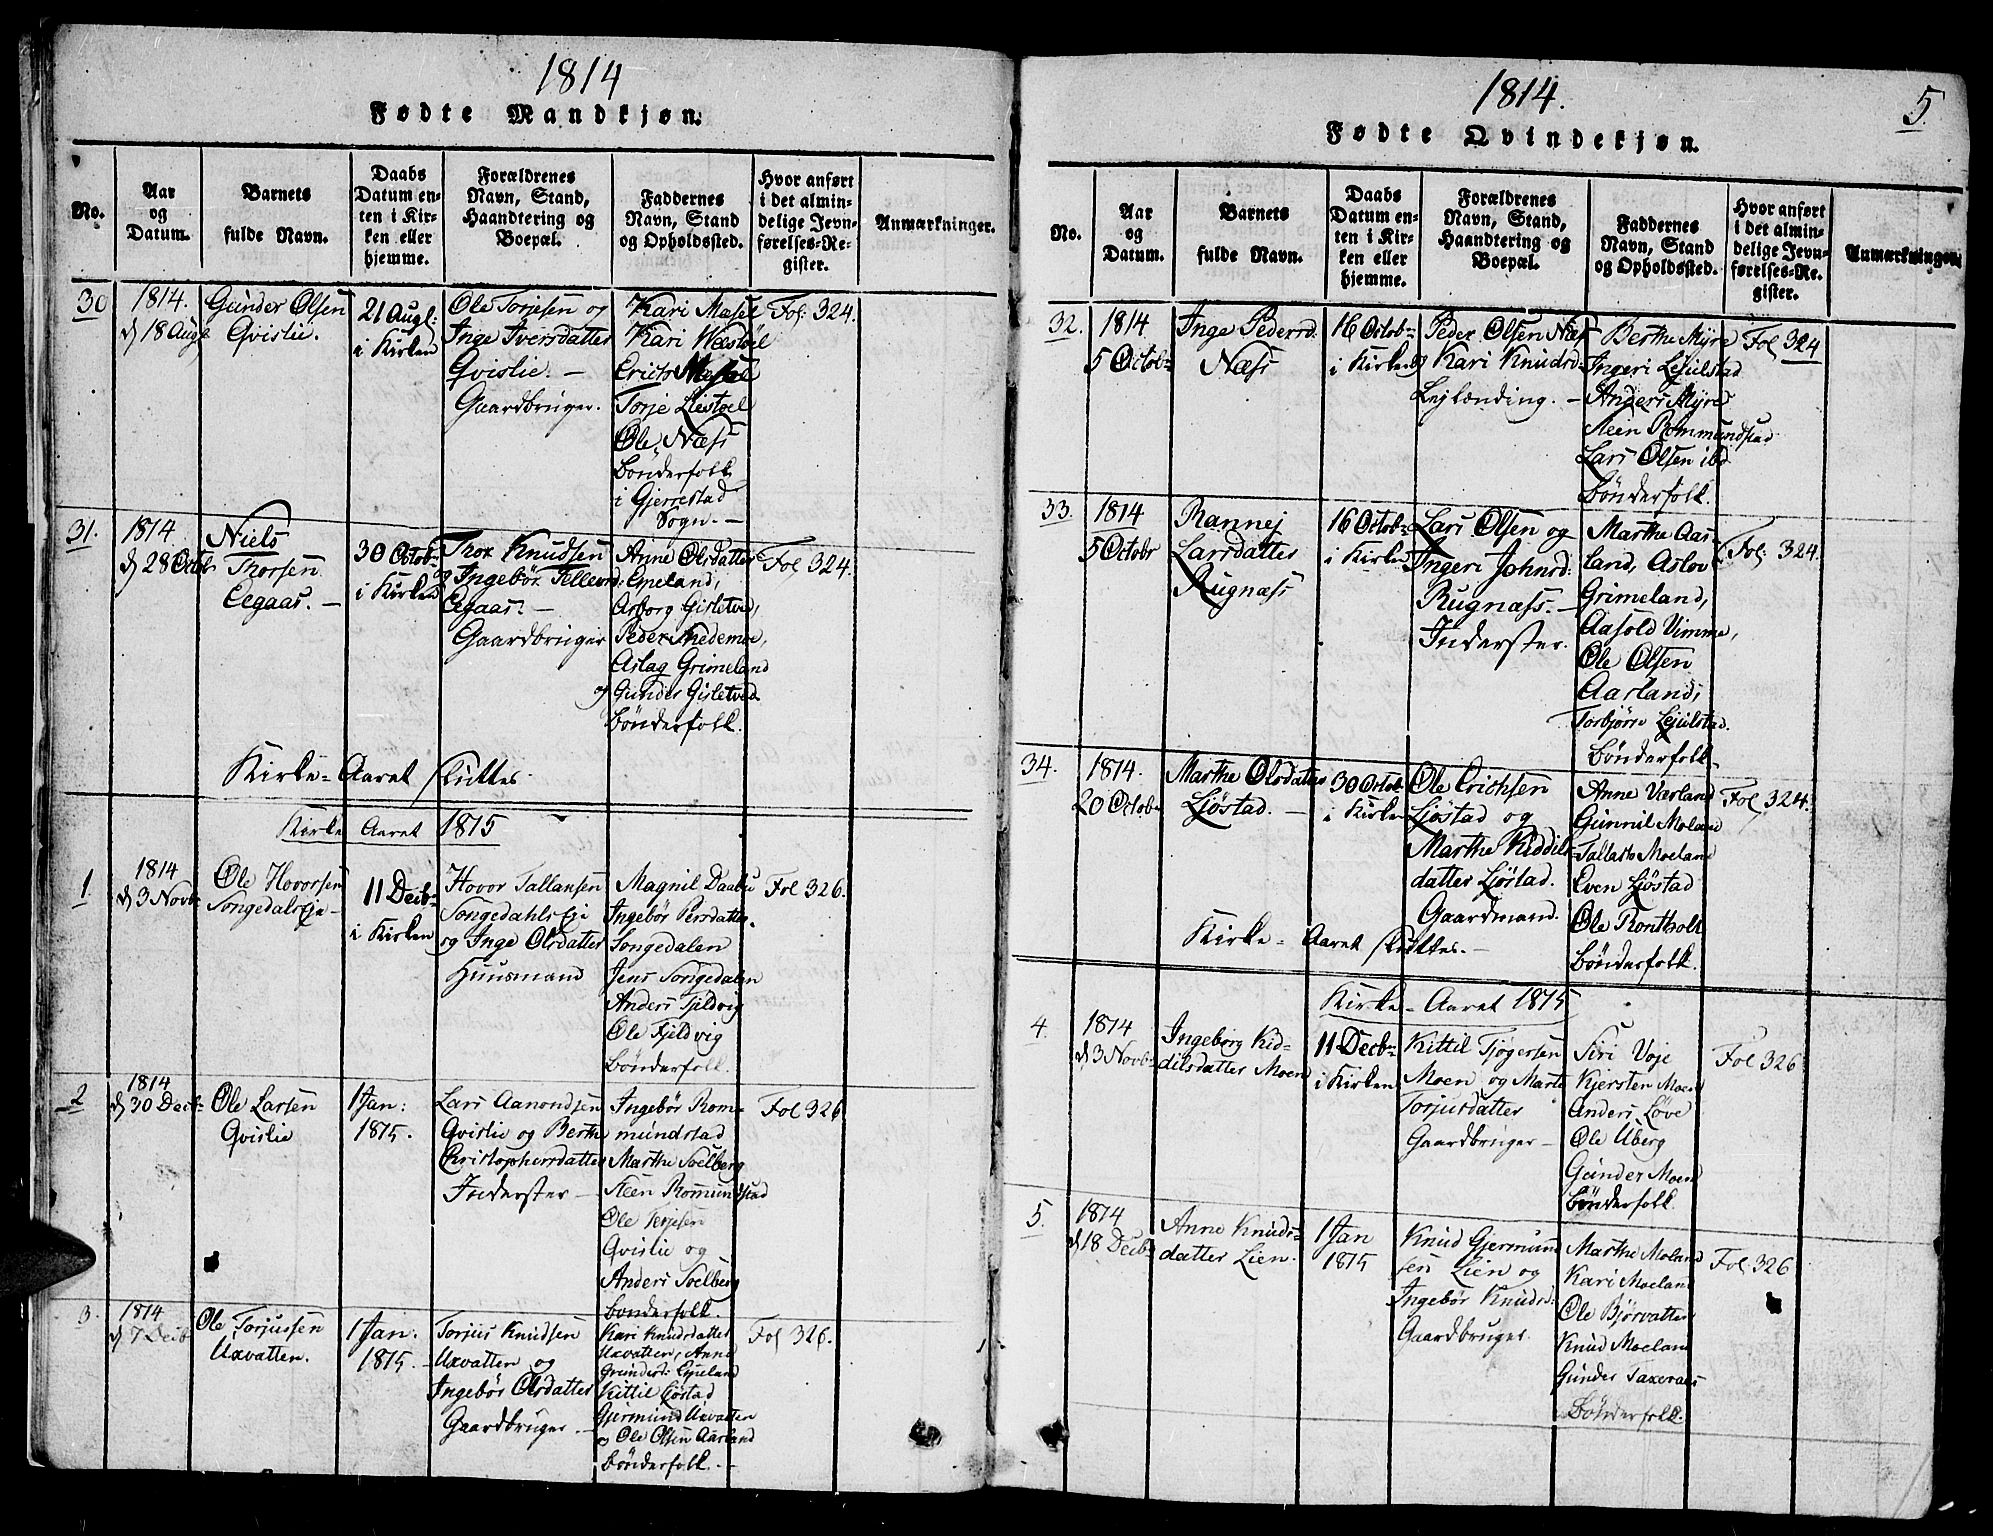 1814
Fødte Mandkjøn.
No.
Aar
og
Datum.
Barnets
fulde Navn.
Daabs
Datum en-
ten i Kir-
ken eller
hjemme.
Forældrenes
Navn, Stand,
Haandtering og
Boepæl.
Faddernes
Navn, Stand
og Opholdssted.
Hvor anført
i det almin-
delige Jevn-
førelses-Re-
gister.
Anmærkninger.
30
1814.
d 18 Augl
Gunder Olsen
Qvislie.
21 Augl:
i Kirken
Ole Torjesen og
Inge Iversdatter
Qvislie. –
Gaardbruger.
Kari Masel
Kari Westøel
Erich Masel
Torje Liestøel
Ole Næss
Bønderfolk
i Gjerrestad
Sogn. –
Fol: 324.
31.
1814.
d 28 Octobr
Niels
Thorsen
Eegaas. –
30 Octob-
i Kirken
Thor Knudsen
og Ingebør Tellevsd:
Eegaas. –
Gaardbruger
Anne Olsdatter
Epeland,
Asborg Gisletved,
Peder Medemoe,
Aslag Grimeland
og Gunder Gisletved
Bønderfolk.
Fol 324.
Kirke-Aaret sluttes
Kirke Aaret 1815
1
1814
d 3 Novb-
Ole Hovorsen
Songedalseje –
11 Decb-
i Kirken
Hovor Tallaksen
Songedahlseje
og Inge Olsdatter
Huusmand
Magnil Daabu
Ingebør Persdatter
Songedalen
Jens Songedalen
Anders Fjeldvig
Ole Fjeldvig
Bønderfolk.
Fol 326.
2
1814
d 30 Decb-
Ole Larsen
Qvislie
1 Jan:
1815.
Lars Aanondsen
Qvislie og Berthe
Christophersdatter
Inderster –
Ingebør Rom-
mundstad
Marthe Soelberg
Steen Rommundstad
Ole Terjesen
Qvislie og
Anders Soelberg
bønderfolk.
Fol 326.
3.
1814
d 7 Decb
Ole Torjussen
Uxvatten.
1 Jan:
1815.
Torjus Knudsen
Uxvatten og
Ingebør Olsdatter
Gaardbruger –
Kari Knudsdatter
Uxvatten, Anne
Gundersd: Epeland
Kittil Ljøstad
Gjermund Uxvatten
og Ole Olsen Aarland
Bønderfolk. –
Fol 326.
1814.
5.
Fødte Qvindekjøn.
No.
Aar
og
Datum.
Barnets
fulde Navn.
Daabs
Datum en-
ten i Kir-
ken eller
hjemme.
Forældrenes
Navn, Stand,
Haandtering og
Boepæl.
Faddernes
Navn, Stand
og Opholdssted.
Hvor anført
i det almin-
delige Jevn-
førelses-Re-
gister.
Anmærkninger.
32.
1814
5 Octob-
Inge Pedersd.
Næss
16 Octob-
i Kirken
Peder Olsen Næs
og Kari Knudsd-
Lejlænding. –
Berthe Myre
Ingeri Lejulstad
Anders Myre
Stein Rommundstad
Lars Olsen ibd
Bønderfolk.
Fol 324
33.
1814
5 Octobr
Rannej
Larsdatter
Rugnæss
16 Octob-
i Kirken
Lars Olsen og
Ingeri Johnsd:
Rugnæss. –
Inderster.
Marthe Aas-
land, Aslov
Grimeland,
Aasold Vimme,
Ole Olsen
Aarland,
Torbjørn Lejulstad.
Bønderfolk.
Fol: 324.
34.
1814.
20 Octob-
Marthe Olsdatter
Ljøstad. –
30 Octob-
i Kirken
Ole Erichsen
Ljøstad og
Marthe Kiddils-
datter Ljøstad.
Gaardmand.
Anne Værland
Gunnil Moland
Tallak Moeland
Even Ljøstad
Ole Rontholt
Bønderfolk.
Fol 324.
Kirke-Aaret sluttes. –
Kirke-Aaret 1815
4.
1814
d 3 Novb-
Ingeborg Kid-
dilsdatter Moen
11 Decb-
i Kirken
Kittil Tjøgersen
Moen og Marte
Torjusdatter
Gaardbruger –
Siri Voje
Kjersten Moen
Anders Løve
Ole Uberg
Gunder Moen
Bønderfolk.
Fol 326
5.
1814
d 18 Decb-
Anne Knuds-
datter Lien.
1 Jan
1815
Knud Gjermund
sen Lien og
Ingebør Knudsd:
Gaardbruger.
Marthe Moland
Kari Moeland
Ole Bjørvatten
Knud Moeland
Gunder Taxeraas
Bønderfolk.
Fol: 326